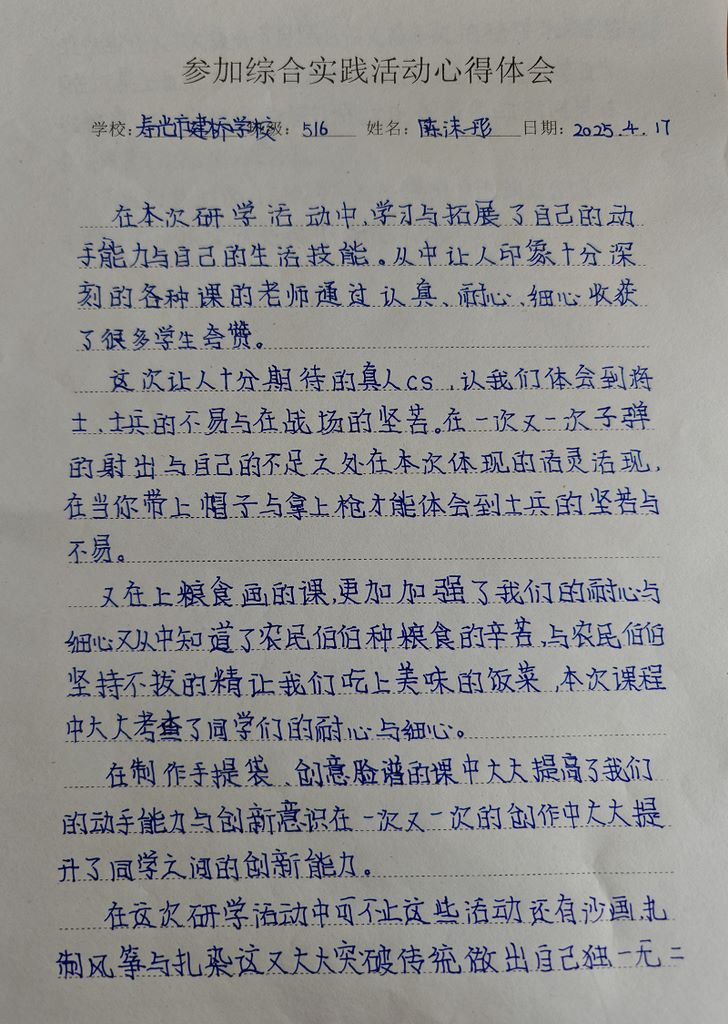 参加综合实践活动心得体会
学校：寿光市建桥学校 班级：516 姓名：陈沫彤 日期：2025.4.17
在本次研学活动中，学习与拓展了自己的动
手能力与自己的生活技能。从中让人印象十分深
刻的各种课的老师通过认真、耐心、细心收获
了很多学生夸赞。
这次让人十分期待的真人cs，认我们体会到将
士、士兵的不易与在战场的坚苦。在一次又一次子弹
的射出与自己的不足之处在本次体现的活灵活现，
在当你带上帽子与拿上枪才能体会到士兵的坚苦与
不易。
又在上粮食画的课，更加加强了我们的耐心与
细心又从中知道了农民伯伯种粮食的辛苦，与农民伯伯
坚持不拔的精让我们吃上美味的饭菜，本次课程
中大大考查了同学们的耐心与细心。
在制作手提袋、创意脸谱的课中大大提高了我们
的动手能力与创新意识在一次又一次的创作中大大提
升了同学之间的创新能力。
在这次研学活动中可不止这些活动还有沙画，扎
制风筝与扎染这又大大突破传统做出自己独一无二